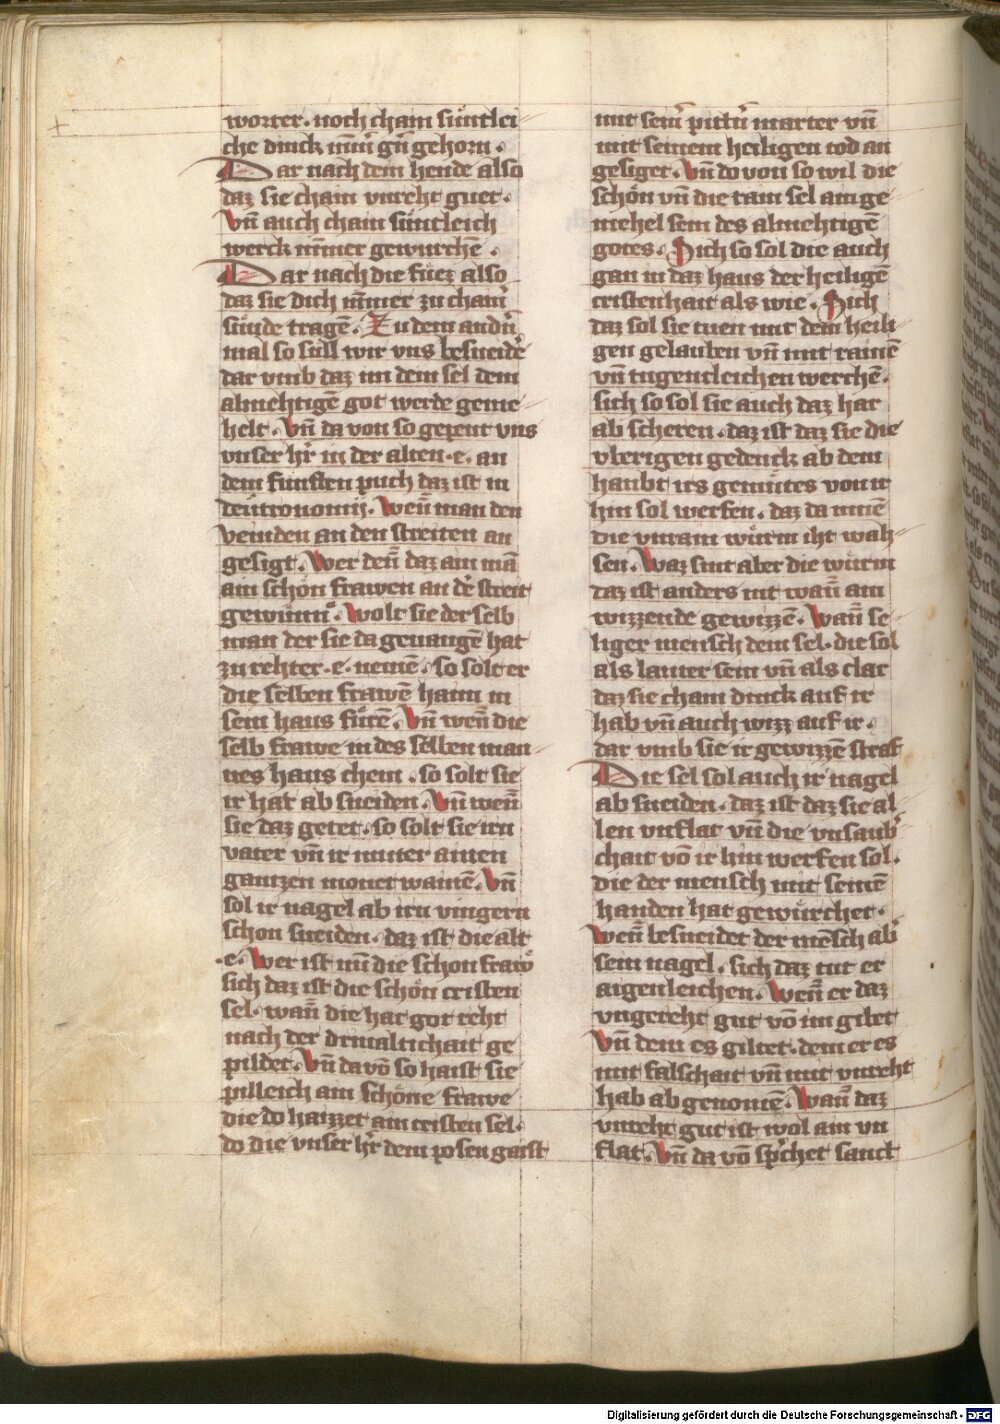 worter · noch chain süntlei
che dinck nim̄ gñ gehorn ·
Dar nach dem hende also
daz sie chain vnreht guet ·
Vn̄ auch chain süntleich
werck nīmer gewurchē ·
Dar nach die füez also
daz sie dich nīmer zu chain̄
sünde tragē · Zu dem andn̄
mal so süll wir vns besneidē
dar vmb daz im dem sel dem
almehtigē got werde geme-
helt · Vn̄ da von so gepeut vns
vnser hr̄ in der alten · e · an
dem funften puch daz ist in
deutronomij · Wen̄ man den
veinden an den streiten an
gesigt · Wer den̄ daz ain mā
ain schön frawen an dē streit
gewünn̄ · Wolt sie der selb
man der sie da geuangē hat
zu rehter · e · nemē · so solt er
die selben frawē haim in
sein haus fürē · Vn̄ wen̄ die
selb frawe in des selben man-
nes haus chem · so solt sie
ir har ab sneiden · Vn̄ wen̄
sie daz getet · so solt sie irn
vater vn̄ ir muter ainen
gantzen monet wainē · Vn̄
sol ir nagel ab irn vingern
schon sneiden · daz ist die alt
· e · Wer ist nu die schon fraw
sich daz ist die schön cristen
sel · wan̄ die hat got reht
nach der driualtichait ge
pildet · Vn̄ da vō so haist sie
pilleich ain schöne frawe
die do haizzet ain cristen sel ·
do die vnser hr̄ dem posen gaist
mit sein̄ pittn̄ marter vn̄
mit seinem heiligen tod an
gesiget · Vn̄ do von so wil die
schön vn̄ die rain sel ain ge
mehel sein des almehtigē
gotes · Sich so sol die auch
gan in daz haus der heiligē
cristenhait als wie · Sich
daz sol sie tuen mit dem heili
gen gelauben vn̄ mit rainē
vn̄ tugentleichen werchē ·
sich so sol sie auch daz har
ab scheren · daz ist daz sie die
vberigen gedenck ab dem
haubt irs gemütes von ir
hin sol werfen · daz da innē
die vnrain würm iht wah-
sen · Waz sint aber die würm
daz ist anders nit wan̄ ain
wizzende gewizzē · Wan̄ se-
liger mensch dem sel · die sol
als lauter sein vn̄ als clar
daz sie chain dinck auf ir
hab vn̄ auch wizz auf ir ·
dar vmb sie ir gewizzē straf
Die sel sol auch ir nagel
ab sneiden · daz ist daz sie al-
len vnflat vn̄ die vnsaub̄
chait vō ir hin werfen sol ·
die der mensch mit seinē
handen hat gewürchet ·
Wen̄ besneidet der mēsch ab̄
sein nagel · sich daz tut er
aigenleichen · Wen̄ er daz
vngereht gut vō im giltet
Vn̄ dem es giltet · dem er es
mit falschait vn̄ mit vnreht
hab ab genomē · Wan̄ daz
vnreht gut ist wol ain vn
flat · Vn̄ da vō sp̄chet sanct
Digitalisierung gefördert durch die Deutsche Forschungsgemeinschaft - DFG